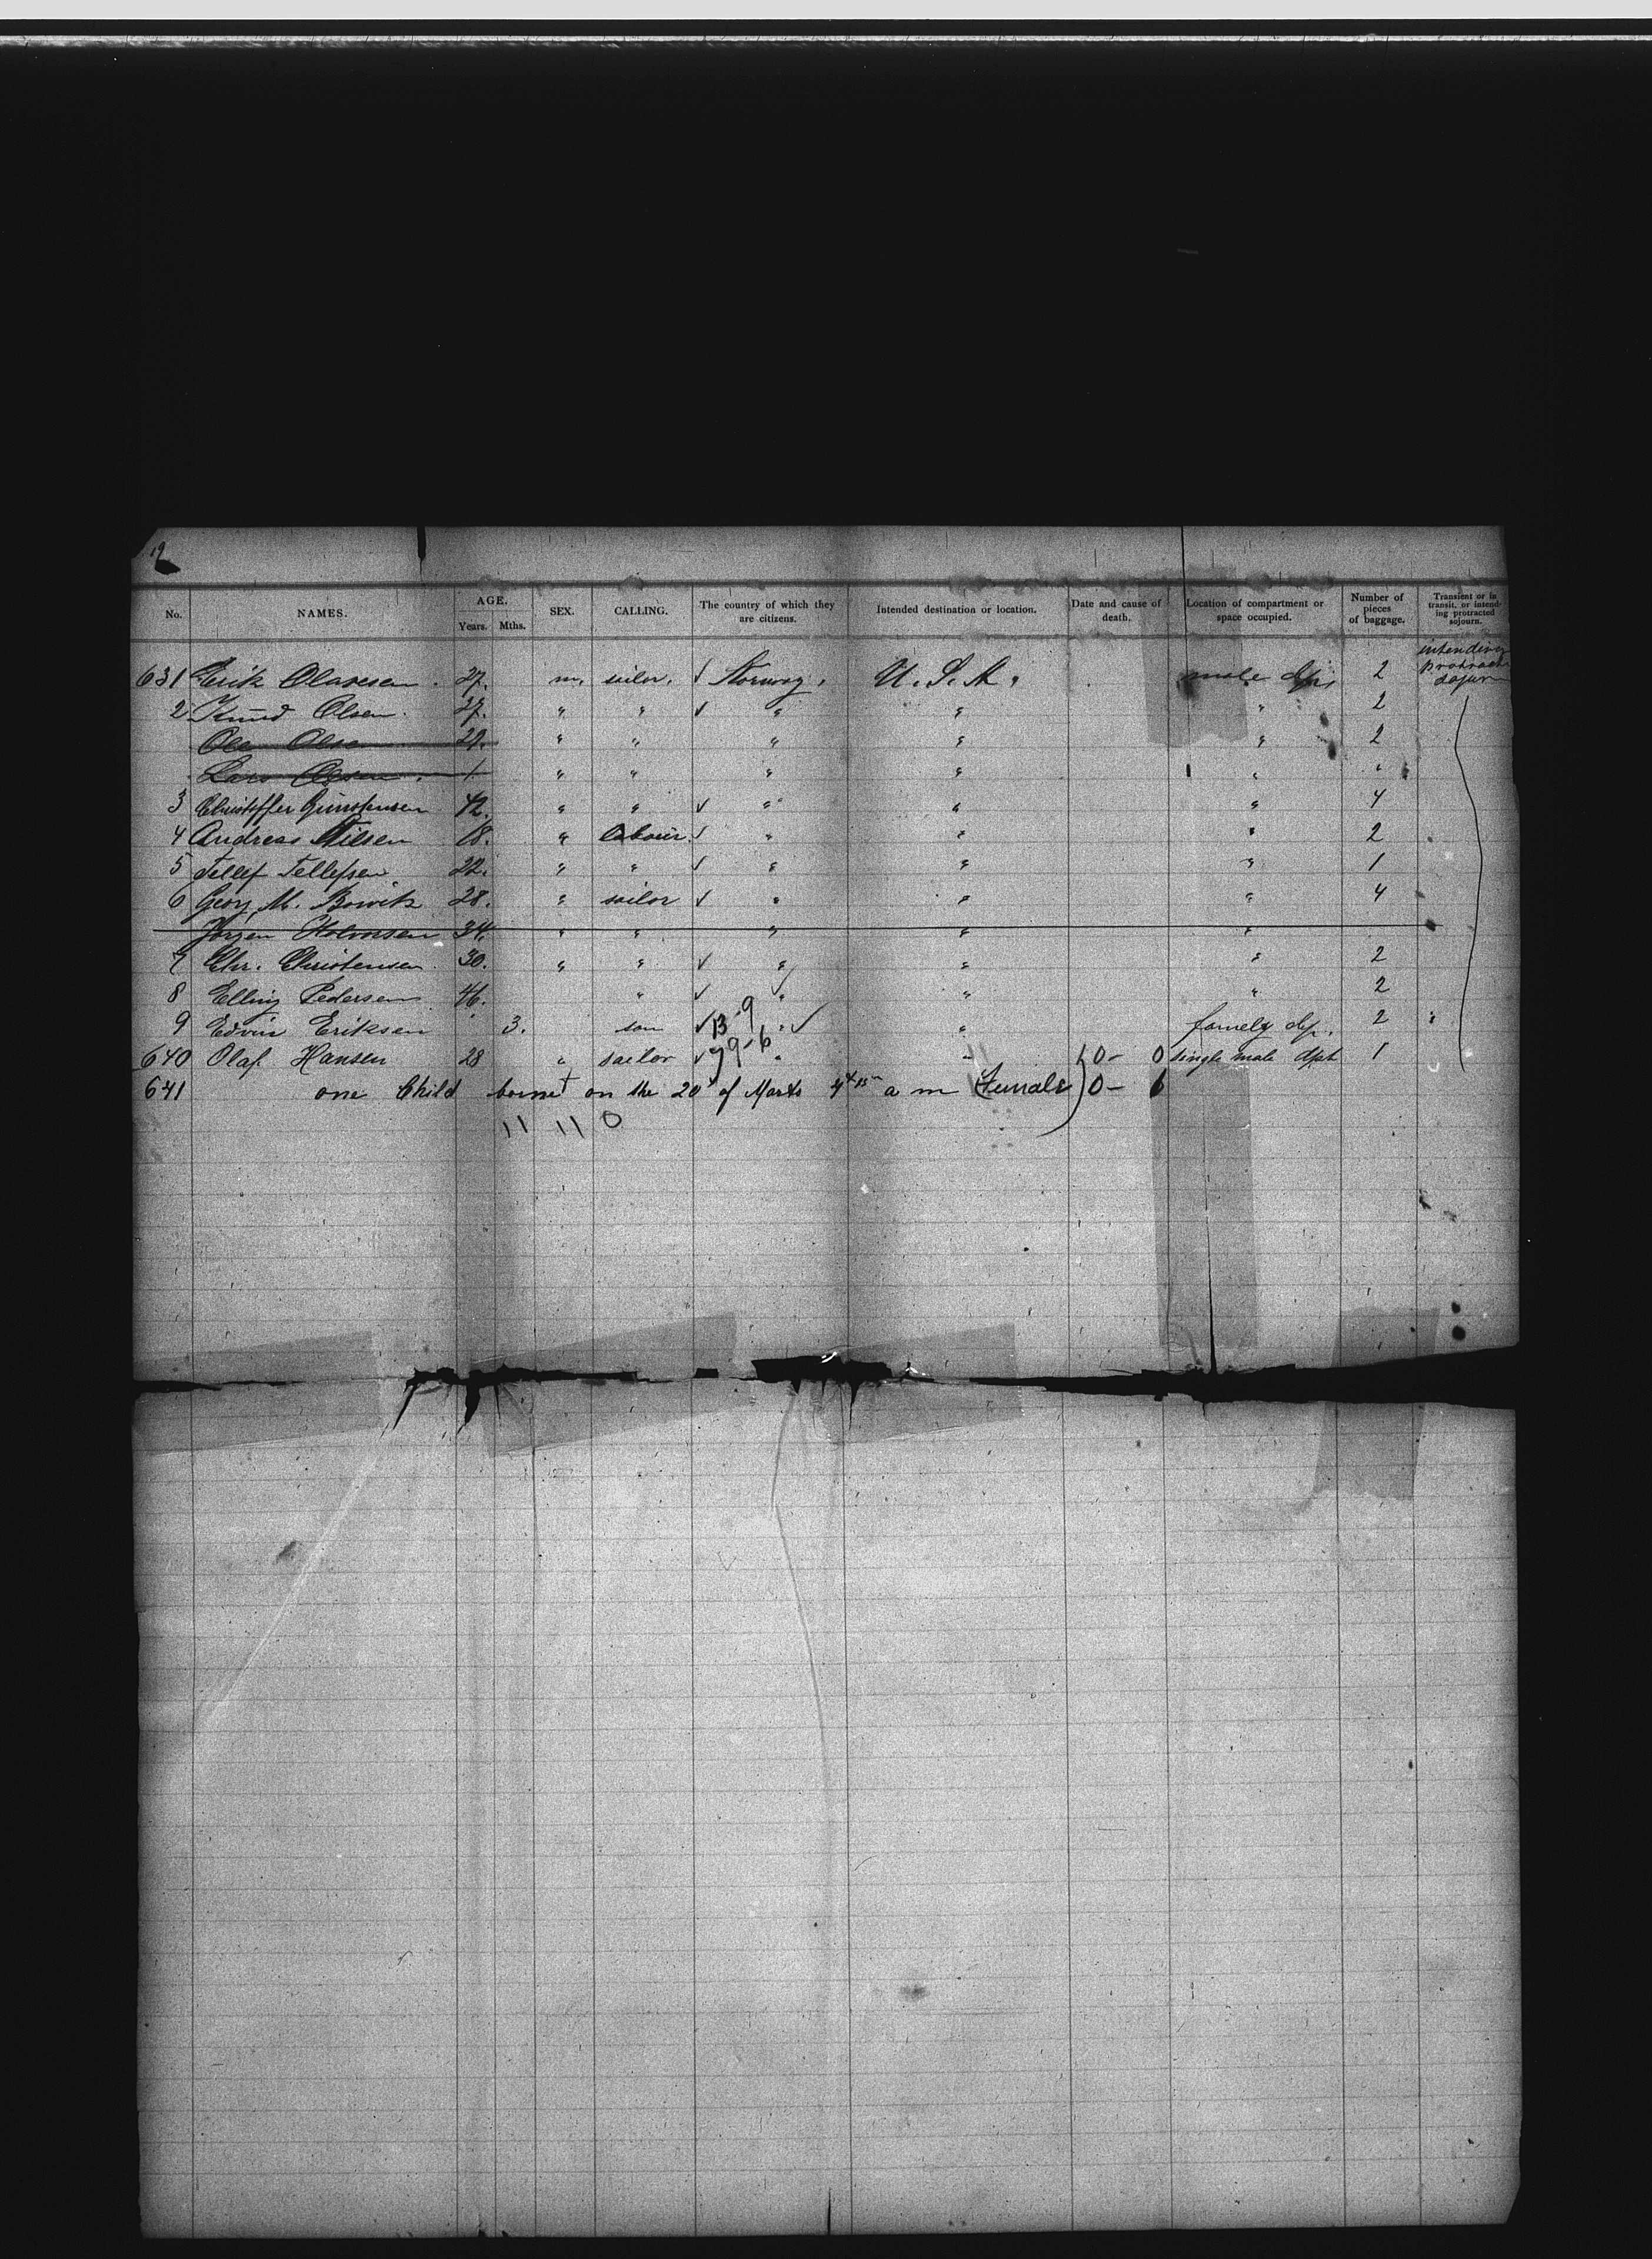 19
No. NAMES. AGE. Years. Mths. SEX. CALLING. The country of which they are citizens. Intended destination or location. Date and cause of death. Location of compartment or space occupied. Number of pieces of baggage. Transient or in transit, or intending protracted sojourn.
631 Erik Olavesen. 27. m. sailor. √ Norway. U. S. A. male dp. 2 intending protract sojurn
2 Knud Olsen. 27. " " √ " " " 2
Ole Olsen 29. " " " " " 2
Lars Olsen. 1. " " " " " "
3 Christoffer Gunstensen 42. " " √ " " " 4
4 Andreas Nilsen 18. " labour. √ " " " 2
5 Tellef Tellefsen 22. " " √ " " " 1
6 Georg M. 28. " sailor √ " " " 4
Jörgen Holvorsen 34. " " " " "
7 Chr. Christensen. 30. " " √ " " " 2
8 Elling Pedersen 46. " √ " " " 2
9 Edvin Eriksen 3. son √ 13-9 " √ " famely dp. 2 "
640 Olaf. Hansen 28 " sailor √ 79-6 " " 0- 0 single male dpt 1
641 one Child borne on the 20 of Marts 4 15 a m (Female) 0- 6
11 11 0